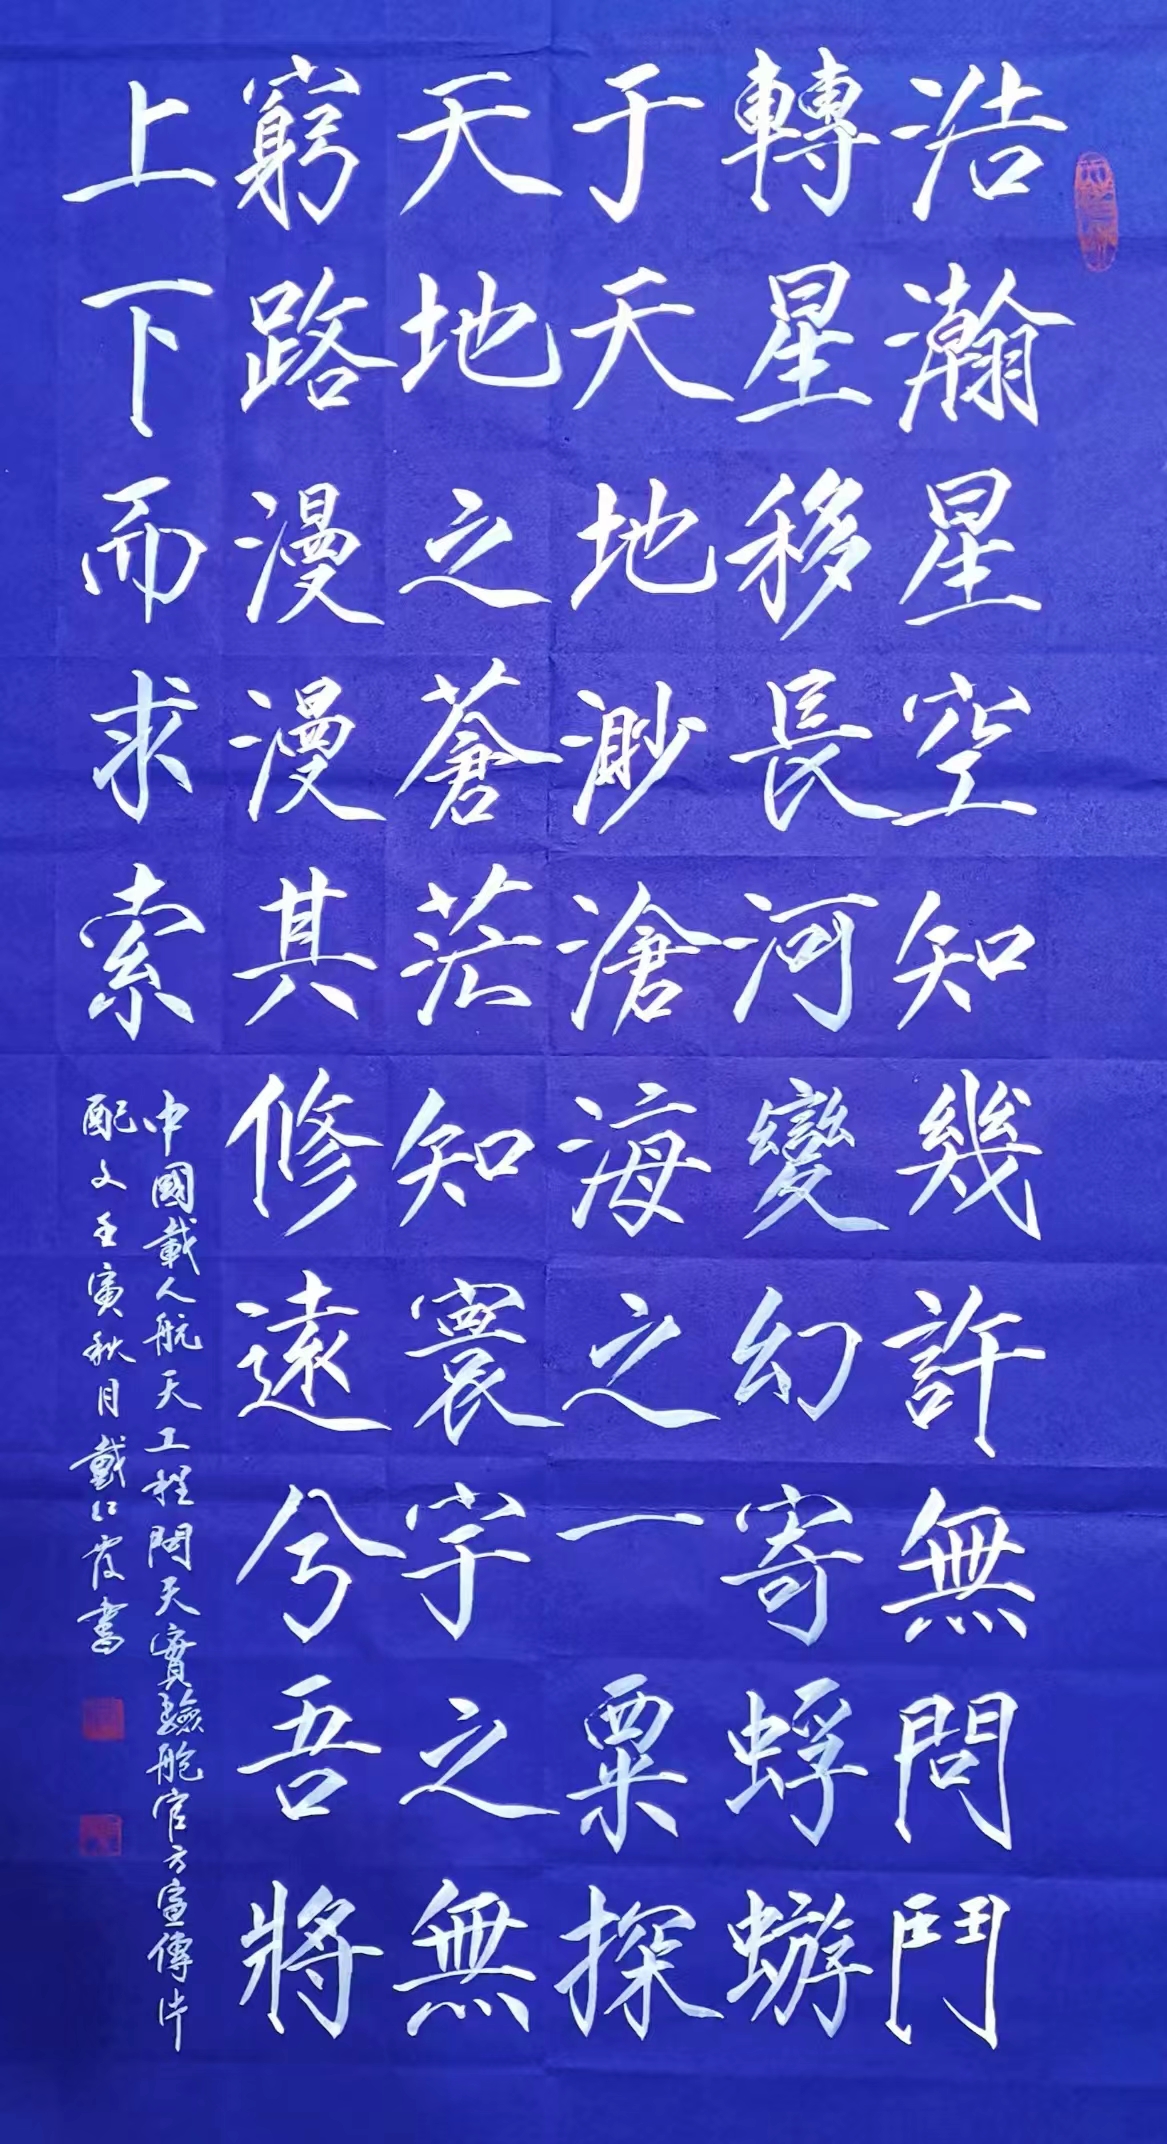 浩瀚星空知幾許無問鬥
轉星移長河變幻寄蜉蝣
于天地渺滄海之一粟探
天地之蒼茫知寰宇之無
窮路漫漫其修遠兮吾將
上下而求索
中國載人航天工程問天實驗艙官方宣傳片
配文壬寅秋月戴仁霞書